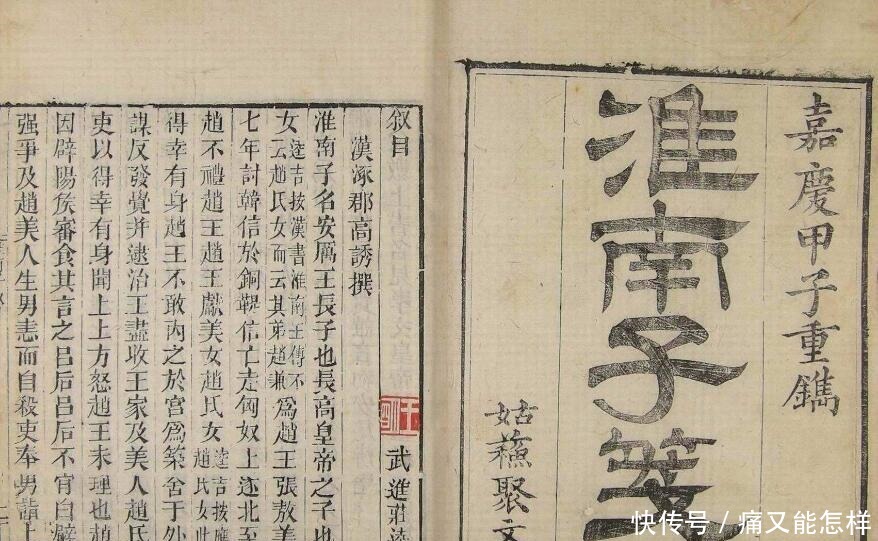 嘉慶甲子重鐫
淮南子箋
姑蘓聚文
叙目 武進莊逵
漢涿郡高誘撰
淮南子名安厲王長子也長高皇帝之子也
女逵吉按漢書淮南王傳不云趙氏女而云其弟趙兼爲趙王張敖美
七年討韓信於銅鞮信亡走匈奴上遂北
趙不禮趙王趙王獻美女趙氏女逵吉按應趙氏女此
得幸有身趙王不敢內之於宮爲築舍于外
謀反發覺并逮治王盡收王家及美人趙氏
吏以得幸有身聞上上方怒趙王未理也趙
因辟陽矦審食其言之呂后呂后不肯白辟
强爭及趙美人生男恚而自殺吏奉男詣上
快传号 / 痛又能怎样